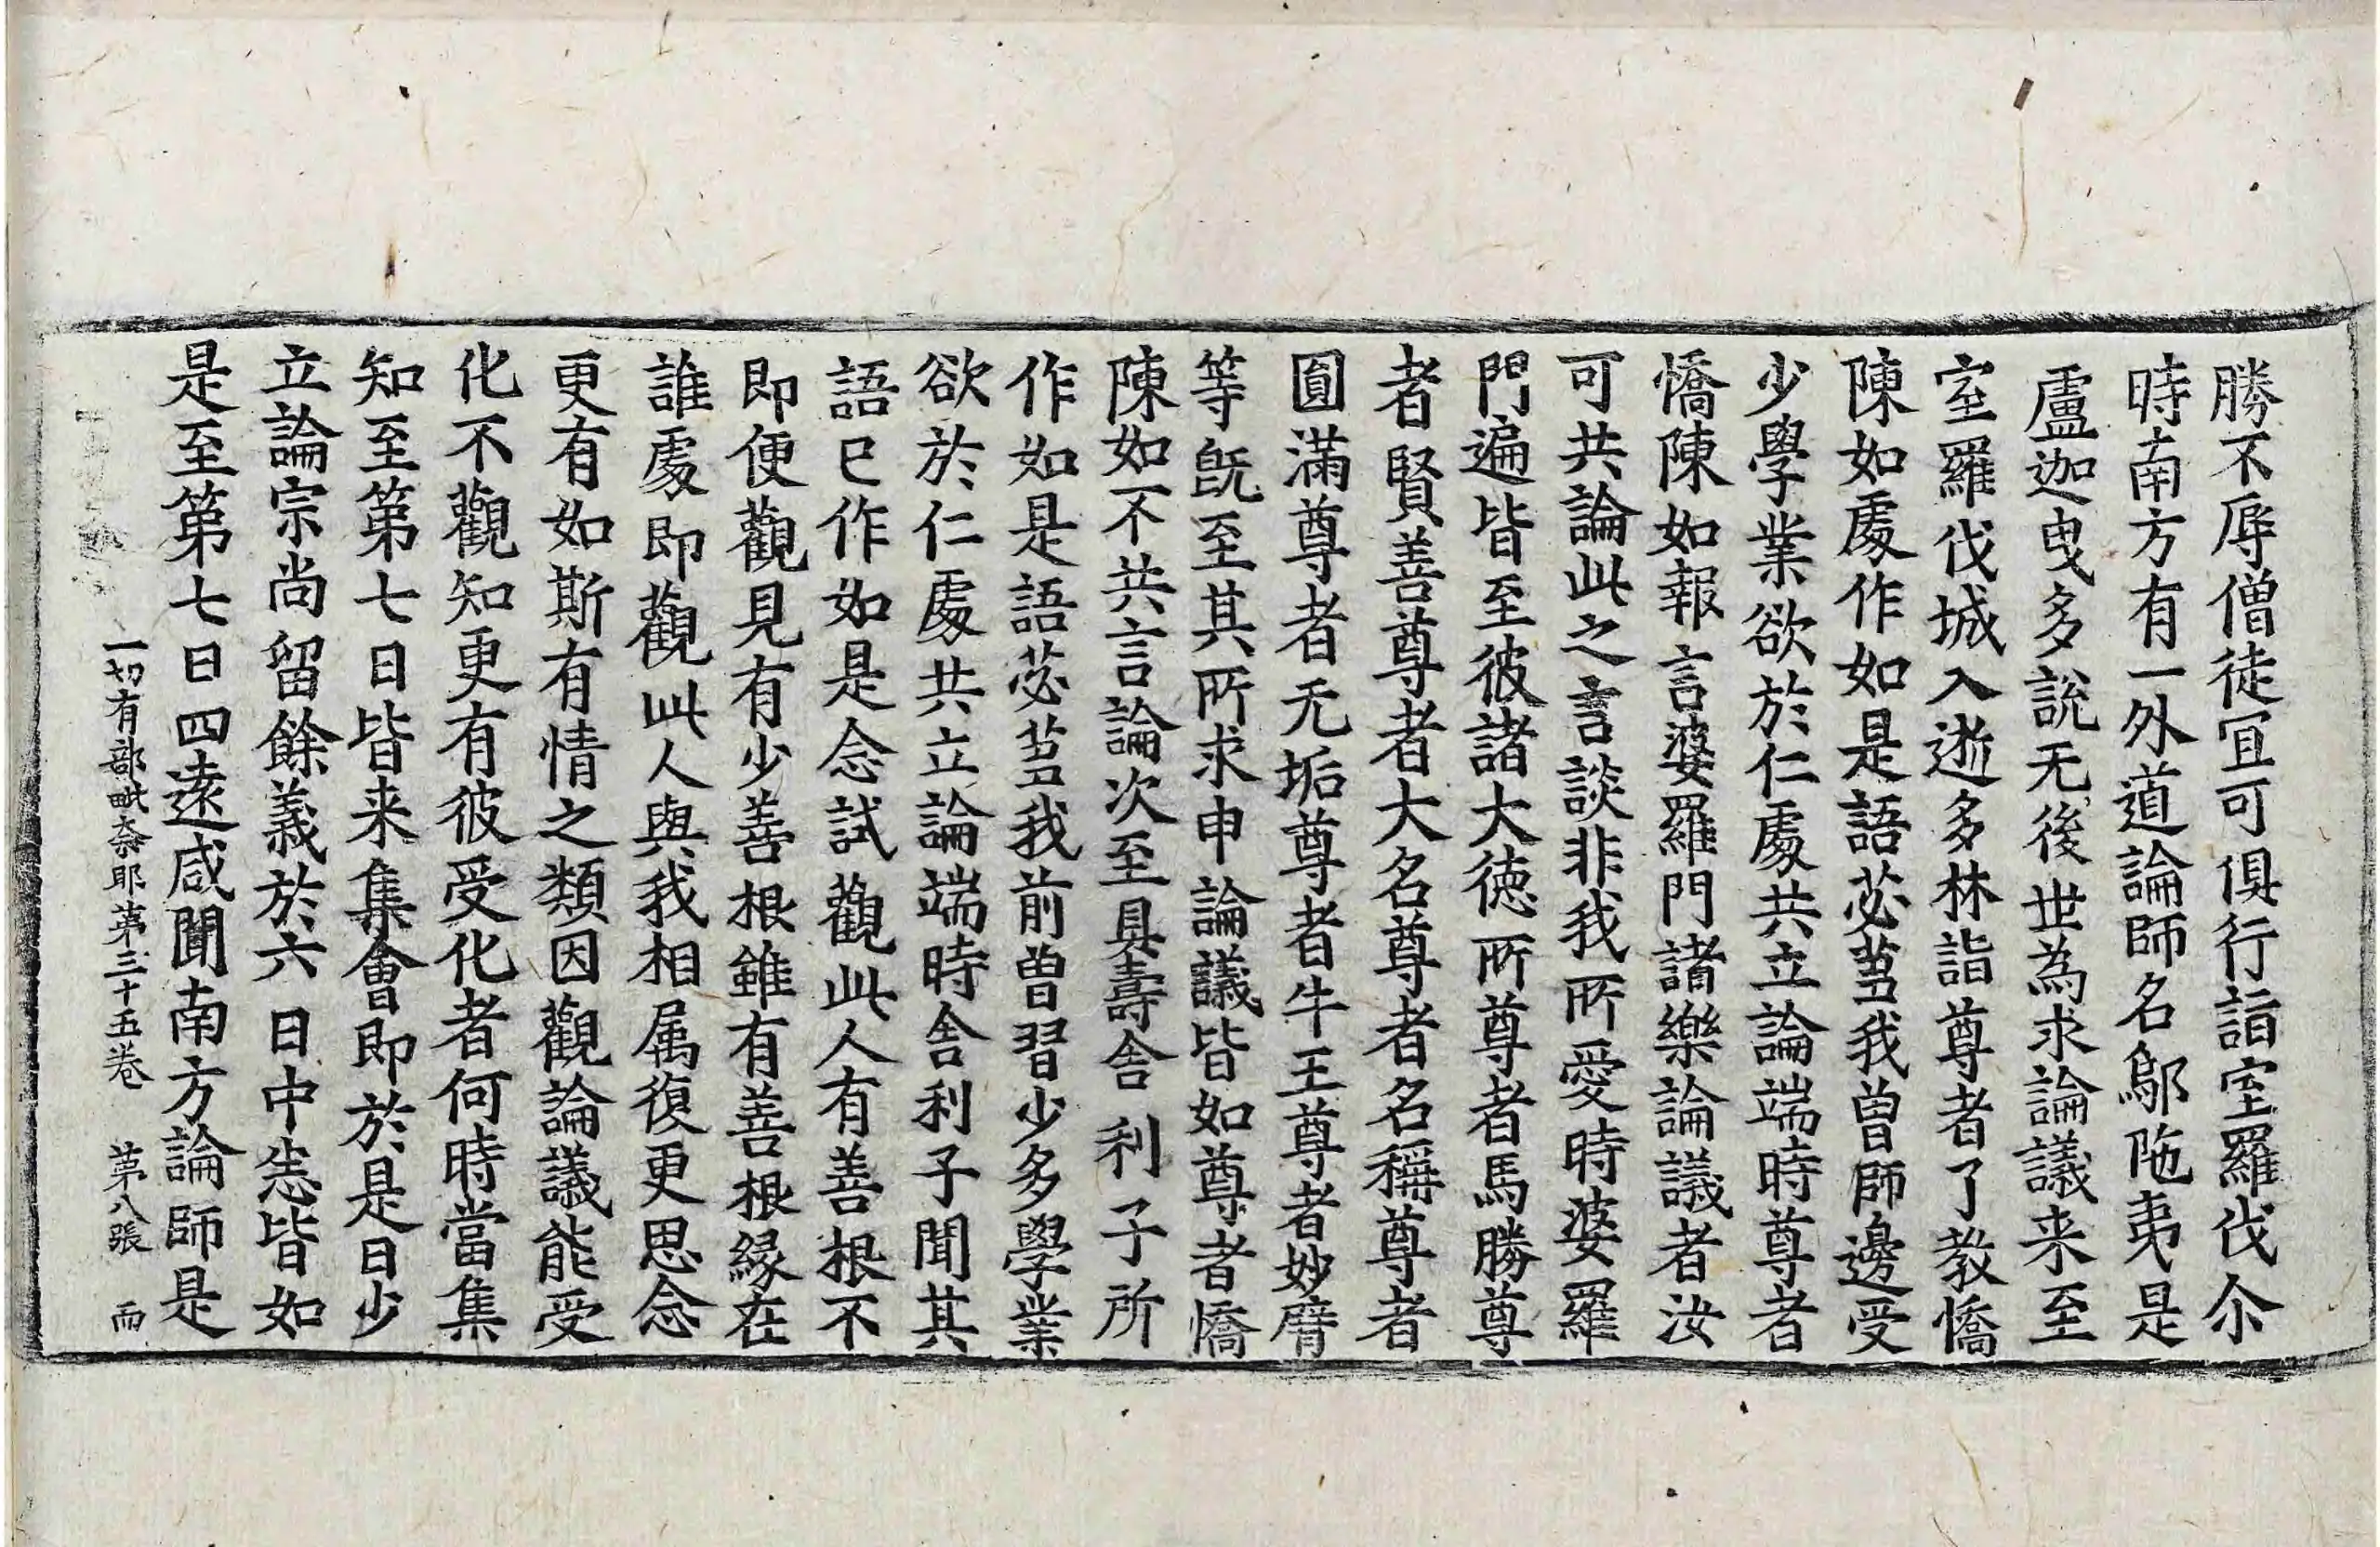 勝不辱僧徒冝可俱行詣室羅伐尒
時南方有一外道論師名鄔陁夷是
盧迦曳多說无後世為求論議来至
室羅伐城入逝多林詣尊者了教憍
陳如䖏作如是語苾蒭我曾師邊受
少學業欲於仁䖏共立論端時尊者
憍陳如報言婆羅門諸樂論議者汝
可共論此之言談非我所愛時婆羅
門遍皆至彼諸大徳所尊者馬勝尊
者賢善尊者大名尊者名稱尊者
圎滿尊者无垢尊者牛王尊者妙臂
等旣至其所求申論議皆如尊者憍
陳如不共言論次至具壽舍利子所
作如是語苾蒭我前曾習少多學業
欲於仁䖏共立論端時舍利子聞其
語已作如是念試觀此人有善根不
即便觀見有少善根雖有善根緣在
誰䖏即觀此人與我相属復更思念
更有如斯有情之類因觀論議能受
化不觀知更有彼受化者何時當集
知至第七日皆来集會即於是日少
立論宗尚留餘義於六日中悉皆如
是至第七日四遠咸聞南方論師是
一切有部毗奈耶第三十五卷　第八張　而